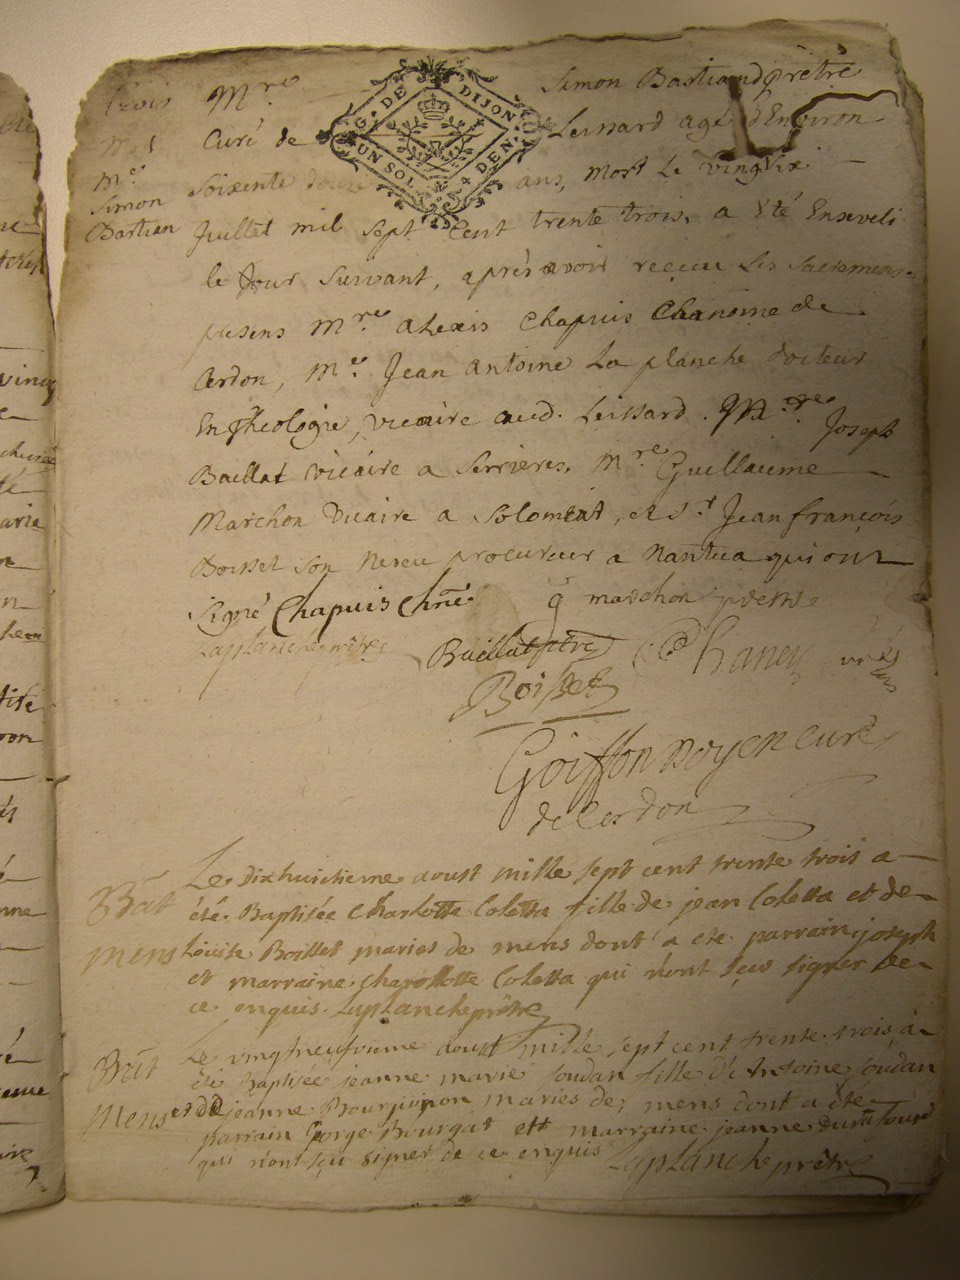 G. DE DIJON
UN SOL 4 DEN.
Mre Simon Bastiand prètre
Curé de Leissard agé d'Environ
Soixente douze ans, mort le vingt six
Mre
Simon
Bastian
Juillet mil sept Cent trente trois, a été Enseveli
le Jour suivant, après avoir receu les sacremens.
presens Mre alexis Chapuis Chanoine de
Cerdon, Mre Jean antoine La planche docteur
En theologie, vicaire aud. Leissard. Mre Joseph
Baillat vicaire a serrieres, Mre Guillaume
Marchon vicaire a Solomiat, et Sr Jean françois
Boisset son neveu procureur a Nantua qui ont
signé Chapuis Chne marchon
Laplanche prètre Baillat
Boisset
Goiffon Doyen curé
de Cerdon
Bat
mens
Le dixhuictieme aoust mille sept cent trente trois a
été Baptisée Charlotte Coletta fille de jean Coletta et de
Louise Boisset maries de mens dont a eté parrain joseph
et marraine Charllotte Coletta qui n'ont sçeu signer de
ce enquis. Laplanche prètre
Bat
Mens
Le vingtneufvieme aoust mille sept cent trente trois à
été Baptisée jeanne marie joudan fille d'Antoine joudan
et de jeanne Bourguignon maries de mens dont a été
parrain George Bourgat ett marraine jeanne Durafour
qui n'ont sçu signer de ce enquis Laplanche prètre